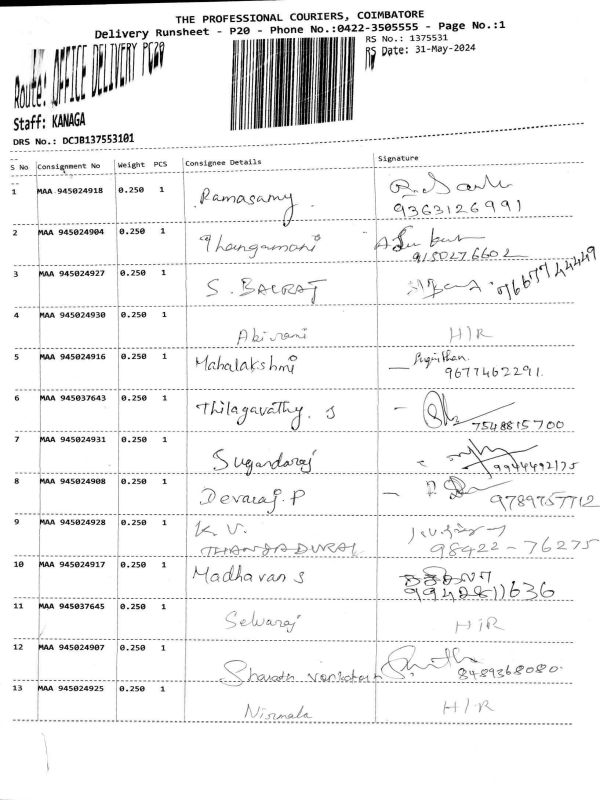 THE PROFESSIONAL COURIERS, COIMBATORE
Delivery Runsheet - P20 - Phone No.:0422-3505555 - Page No.:1
RS No.: 1375531
RS Date: 31-May-2024
Route: OFFICE DELIVERY PC20
Staff: KANAGA
DRS No.: DCJB137553101
S No Consignment No Weight PCS Consignee Details Signature
1 MAA 945024918 0.250 1 Ramasamy
9363126991
2 MAA 945024904 0.250 1 Thangamani
9150276602
3 MAA 945024927 0.250 1 S. BALRAJ 7667744449
4 MAA 945024930 0.250 1
Abirami H/R
5 MAA 945024916 0.250 1 Mahalakshmi
9677462291
6 MAA 945037643 0.250 1 Thilagavathy. S
7548815700
7 MAA 945024931 0.250 1
Sugandaraj 9944492175
8 MAA 945024908 0.250 1
Devaraj. P 9789757712
9 MAA 945024928 0.250 1 K. V.
THANGADURAI 98422-76275
10 MAA 945024917 0.250 1 Madhavan S
11 MAA 945037645 0.250 1
Selvaraj H/R
12 MAA 945024907 0.250 1
Sharath Venkatesh 8489368080
13 MAA 945024925 0.250 1
Nirmala H/R